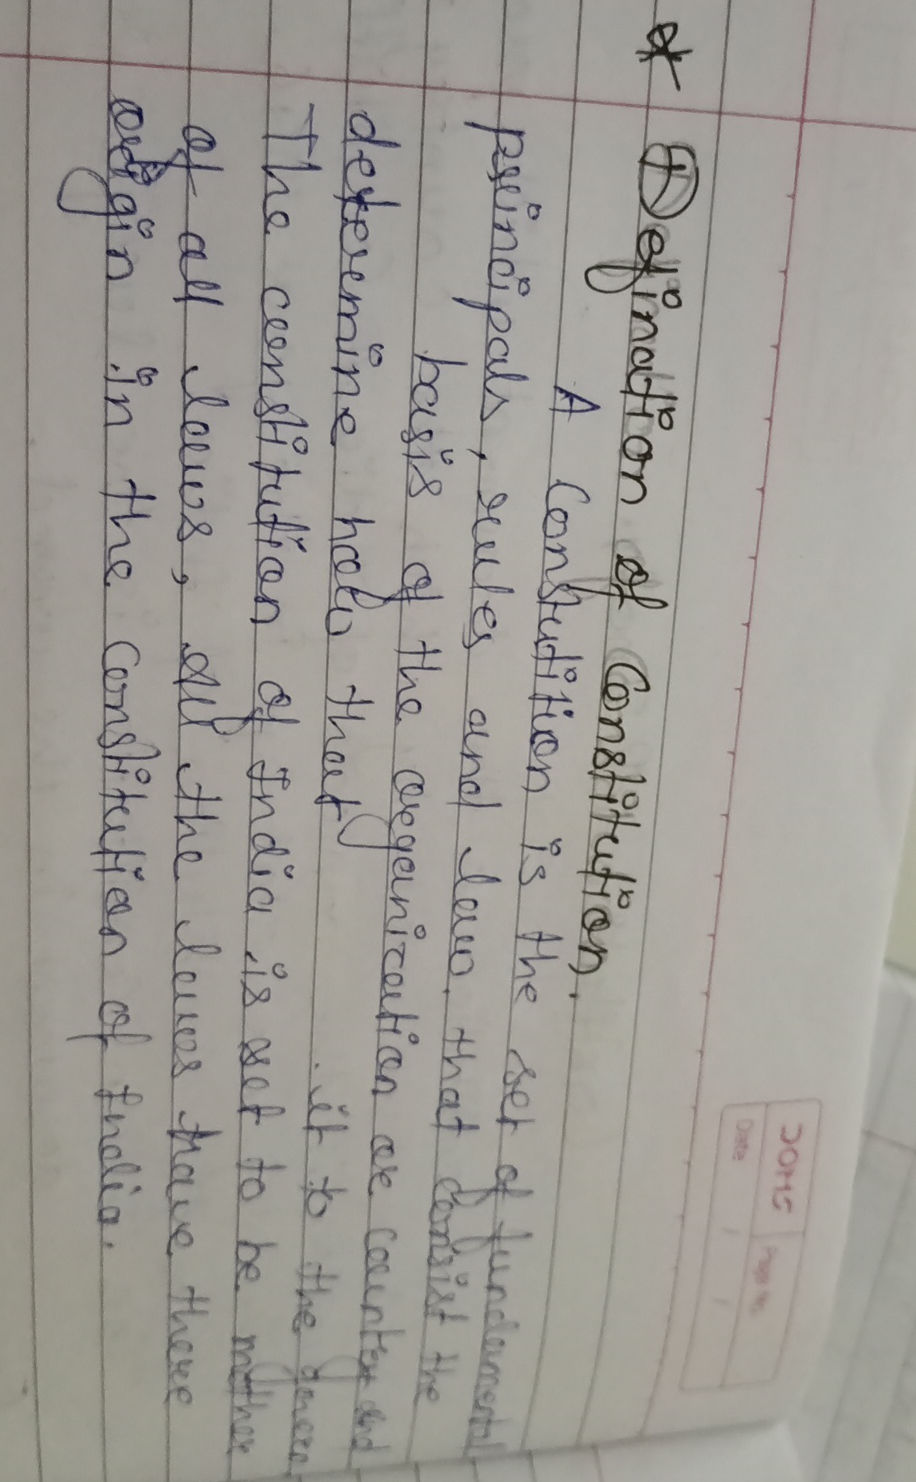 DOMS
Page No.
Date / /
* Defination of Constitution.
A Constutition is the set of fundamental
principals, rules and law. that consist the
basis of the organization or country and
determine how that it to the
The constitution of India is set to be mother
of all laws, All the lawes have there
origin in the Constitution of India.